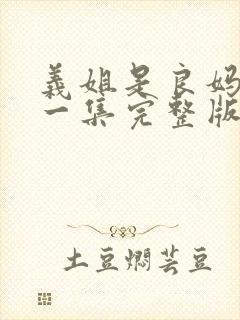 義姐是良妈
一集完整版
土豆焖芸豆